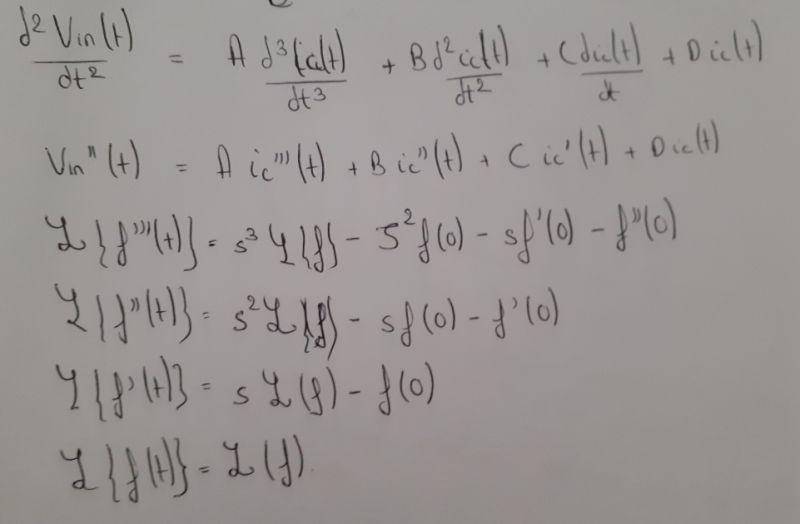 d² Vin(t)/dt² = A d³(ic(t)/dt³ + B d² ic(t)/dt² + C dic(t)/dt + D ic(t)
Vin''(t) = A ic'''(t) + B ic''(t) + C ic'(t) + D ic(t)
ℒ{f'''(t)} = s³ ℒ{f} - s² f(0) - sf'(0) - f''(0)
ℒ{f''(t)} = s² ℒ{f} - sf(0) - f'(0)
ℒ{f'(t)} = s ℒ(f) - f(0)
ℒ{f(t)} = ℒ(f).